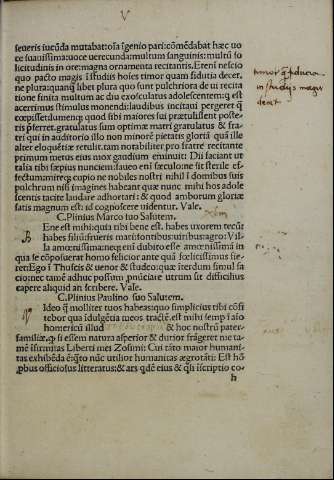 V
seueris iucūda mutabat: oīa īgenio pari: cōmēdabat hæc uo
ce suauissima: uocē uerecundia: multum sanguinis: multū so
licitudinis in ore: magna ornamenta recitantis. Etenī nescio
quo pacto magis ī studiis hoīes timor quam fidutia decet.
ne plura: quanq̄ libet plura quo sunt pulchriora de iuuene
acerrimus stimulos monendi: laudibus incitaui pergeret q̄
gratulatus sum optimæ matri: gratulatus & fra
tri qui ex auditorio illo non minorē pietatis gloriā quā ille
alter eloquētiæ retulit. tam notabiliter pro fratre recitante
primum metus eius mox gaudium eminuit. Dii faciant ut
talia tibi sæpius nunciem: faueo enī sæculo: ne sit sterile &
effœtum
pulchrum nisi imagines habeant quæ nunc mihi hos adole
scentis tacite laudare adhortari: & quod amborum gloriæ
satis magnum est: id cognoscere uidentur. Vale.
C. Plinius Marco suo Salutem.
Ene est mihi: quia tibi bene est. habes uxorem tecū:
habes filiū: frueris mari: fontibus: uiribus: agro: Vil-
la amœnissima: neq; enī dubito esse amœnissimā in
qua se cōposuerat homo felicior ante quā fœlicissimus fie-
ret. Ego ī Thuscis & uenor & studeo: quæ iterdum simul fa
cio; nec tamē adhuc possum p̄nūciare utrum sit difficilius
capere aliquid an scribere. Vale.
C. Plinius Paulino suo Salutem.
Ideo q̄ molliter tuos habeas: quo simplicius tibi cōfi
tebor qua īdulgētia meos tractē. est mihi semp ī aīo
homericū illud & hoc nostrū pater
familiæ. q; si essem natura asperior & durior frāgeret me ta
mē īfirmitas Liberti mei Zosimi: Cui tāto maior humani
tas exhibēda ē: q̄to nūc utilior humanitas ægrotāti. Est hō
p̱bus officiosus litteratus: & ars qdē eius & q̄si īscriptio co-
h
timor q̄ fiducia
in studijs magis
decet